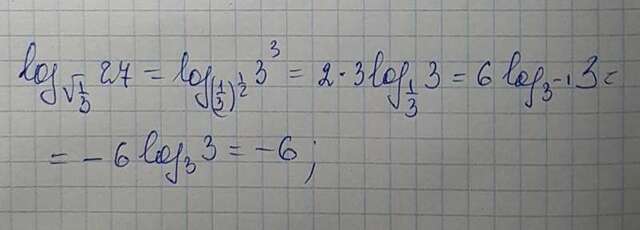 log_{√(1/3)} 27 = log_{(1/3)^{1/2}} 3^3 = 2·3 log_{1/3} 3 = 6 log_{3^{-1}} 3 =
= -6 log_3 3 = -6;